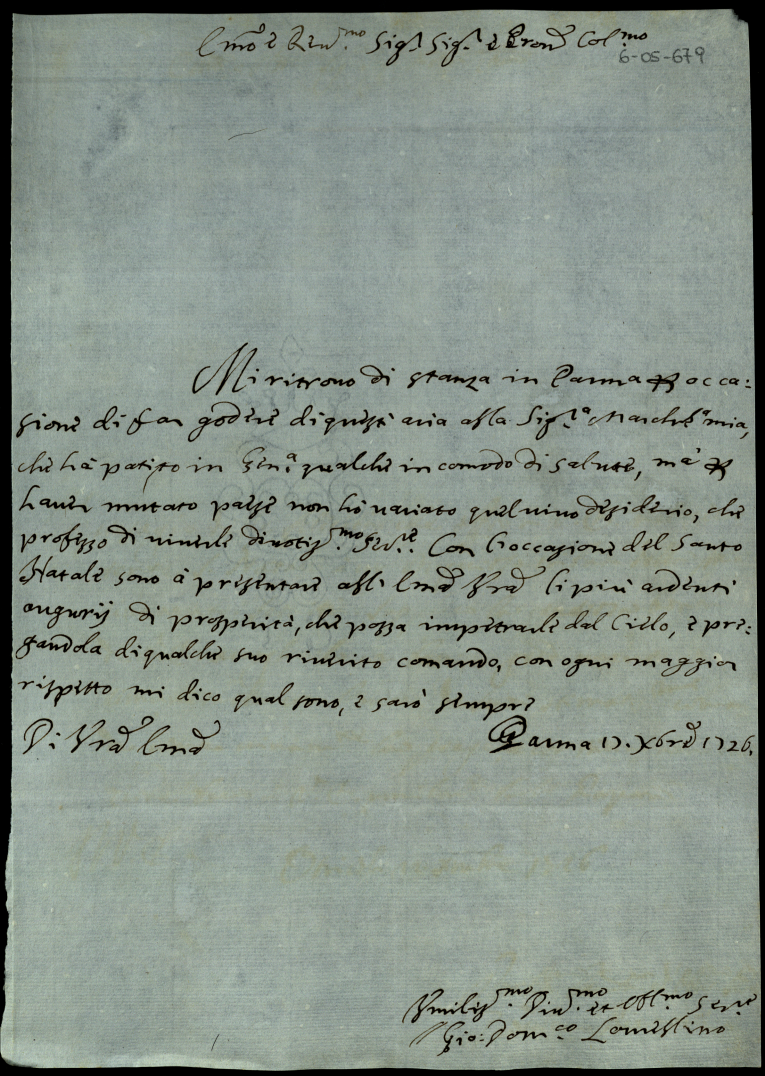 Emo e Rev.mo Sig.r Sig.r e Pron Col.mo
6-05-679
Mi ritrovo di stanza in Parma per occa:
sione di far godere di quest'aria alla Sig.ra March.a mia,
che hà patito in Gen.a qualche incomodo di salute, mà per
haver mutato paese non hò variato quel vivo desiderio, che
professo di viverle divotis.mo Ser.e. Con l'occasione del Santo
Natale sono à presentare all' Ema Vra li più ardenti
augurij di prosperità, che possa impetrarle dal Cielo, e pre:
gandola di qualche suo riverito comando, con ogni maggior
rispetto mi dico qual sono, e sarò sempre
Di Vra Ema
Parma 17. Xbre 1726.
Vmilis.mo Div.mo et Obl.mo Ser.e
Gio: Dom.co Lomellino